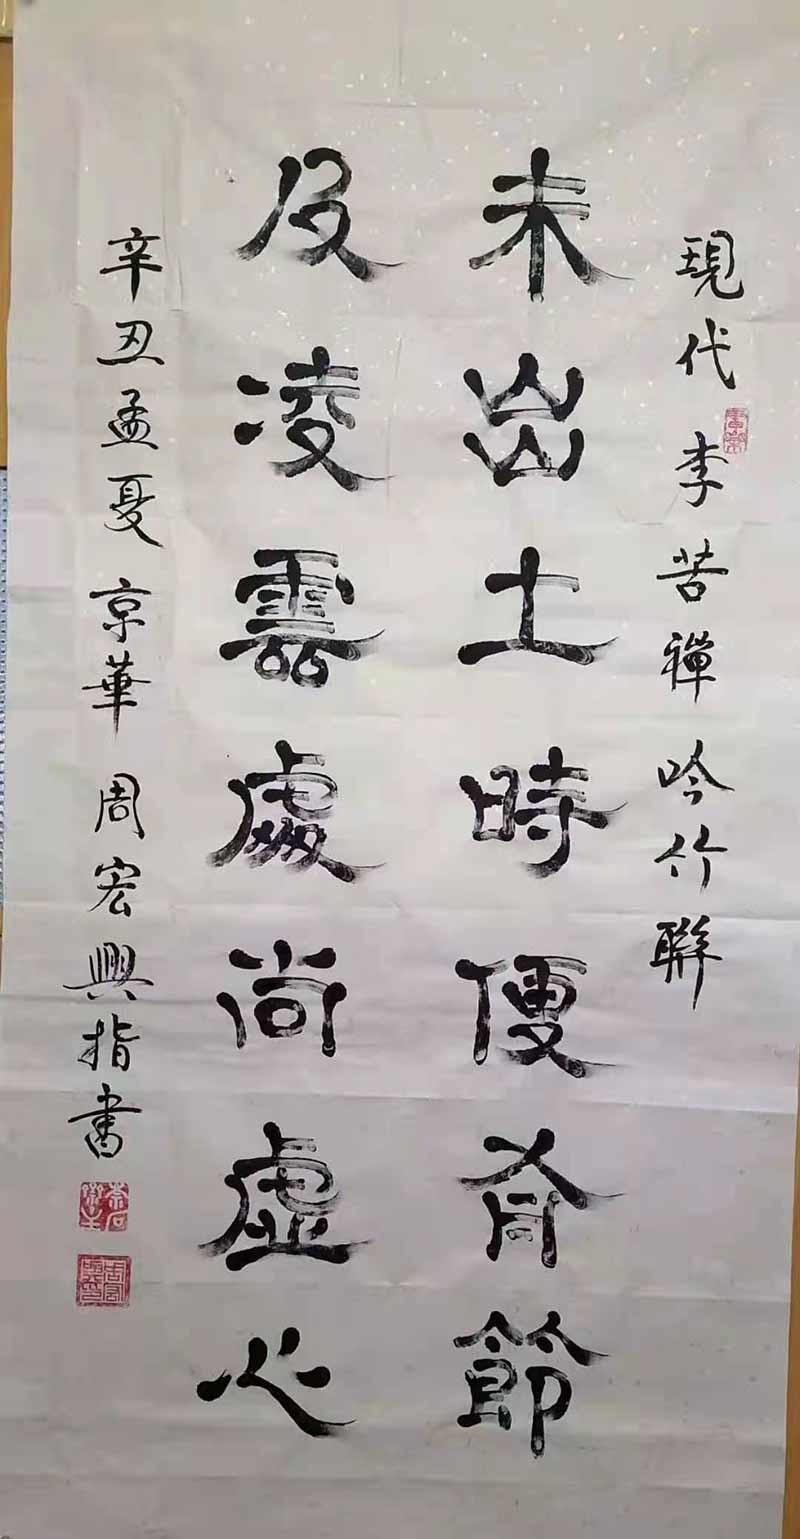 現代李苦禪吟竹聯
未出土時便有節
及凌雲處尚虛心
辛丑孟夏京華周宏興指書